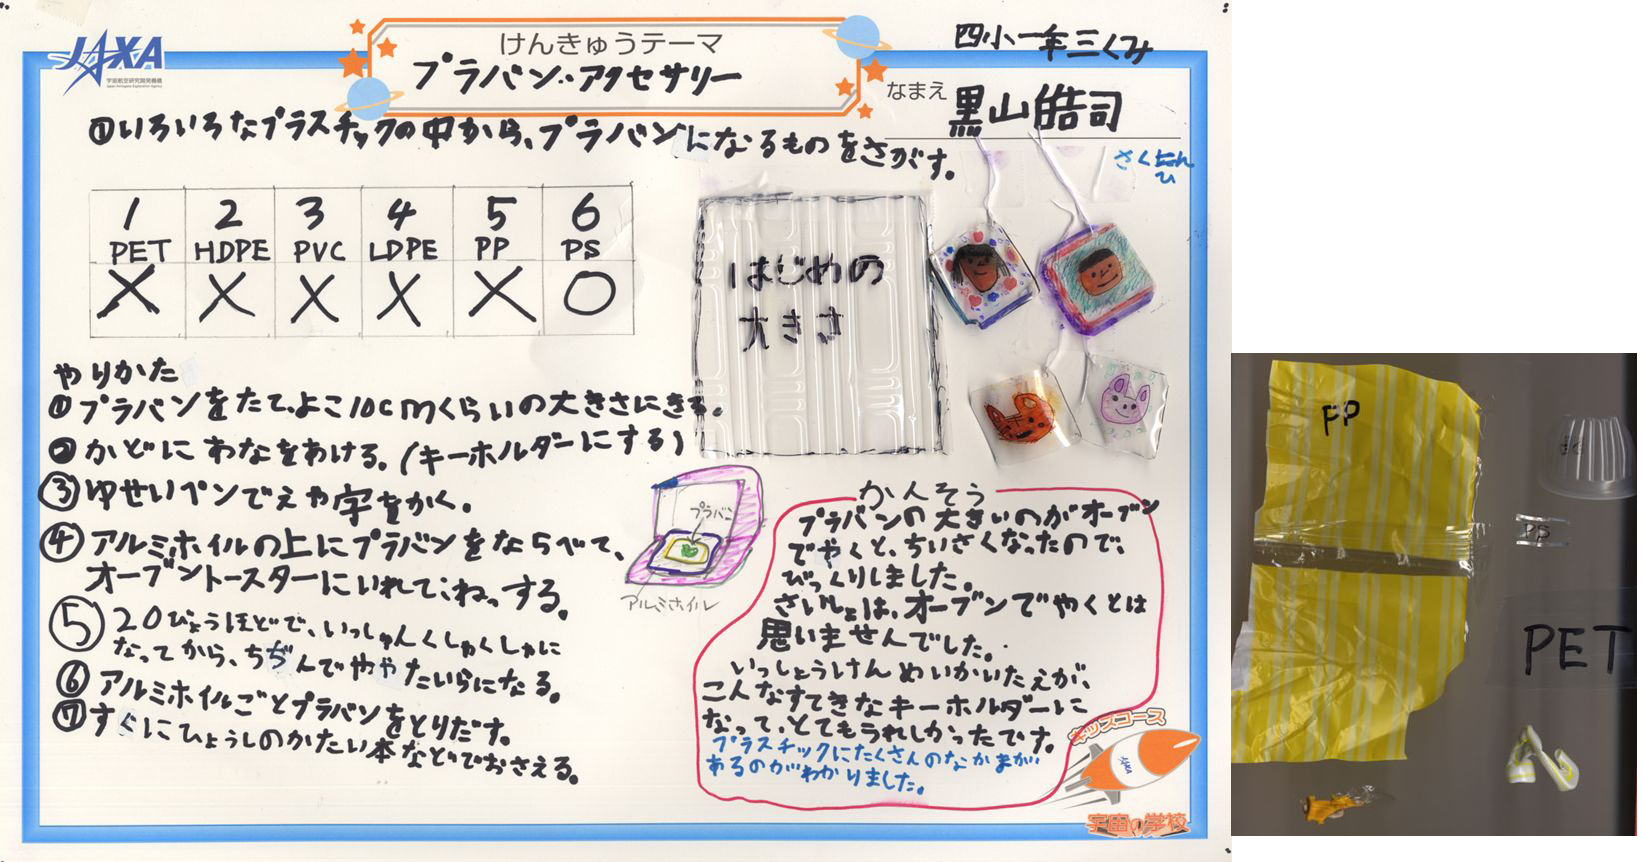 JAXA
宇宙航空研究開発機構
Japan Aerospace Exploration Agency
けんきゅうテーマ
プラバン・アクセサリー
四小一年三くみ
なまえ 黒山皓司
①いろいろなプラスチックの中から、プラバンになるものをさがす。
さくひん
1 2 3 4 5 6
PET HDPE PVC LDPE PP PS
X X X X X O
はじめの
大きさ
やりかた
①プラバンをたて、よこ10cmくらいの大きさにきる。
②かどにわなをあける。(キーホルダーにする)
③ゆせいペンでえや字をかく。
④アルミホイルの上にプラバンをならべて、
オーブントースターにいれて、ねっする。
⑤20びょうほどで、いっしゅんくしゃくしゃに
なってから、ちぢんでややたいらになる。
⑥アルミホイルごとプラバンをとりだす。
⑦すぐにひょうしのかたい本などでおさえる。
プラバン
アルミホイル
かんそう
プラバンの大きいのがオーブン
でやくと、ちいさくなったので、
びっくりしました。
さいしょは、オーブンでやくとは
思いませんでした。
いっしょうけんめいかいたえが、
こんなすてきなキーホルダーに
なって、とてもうれしかったです。
プラスチックにたくさんのなかまが
あるのがわかりました。
キッズコース
JAXA
宇宙の学校
PP
PS
PET